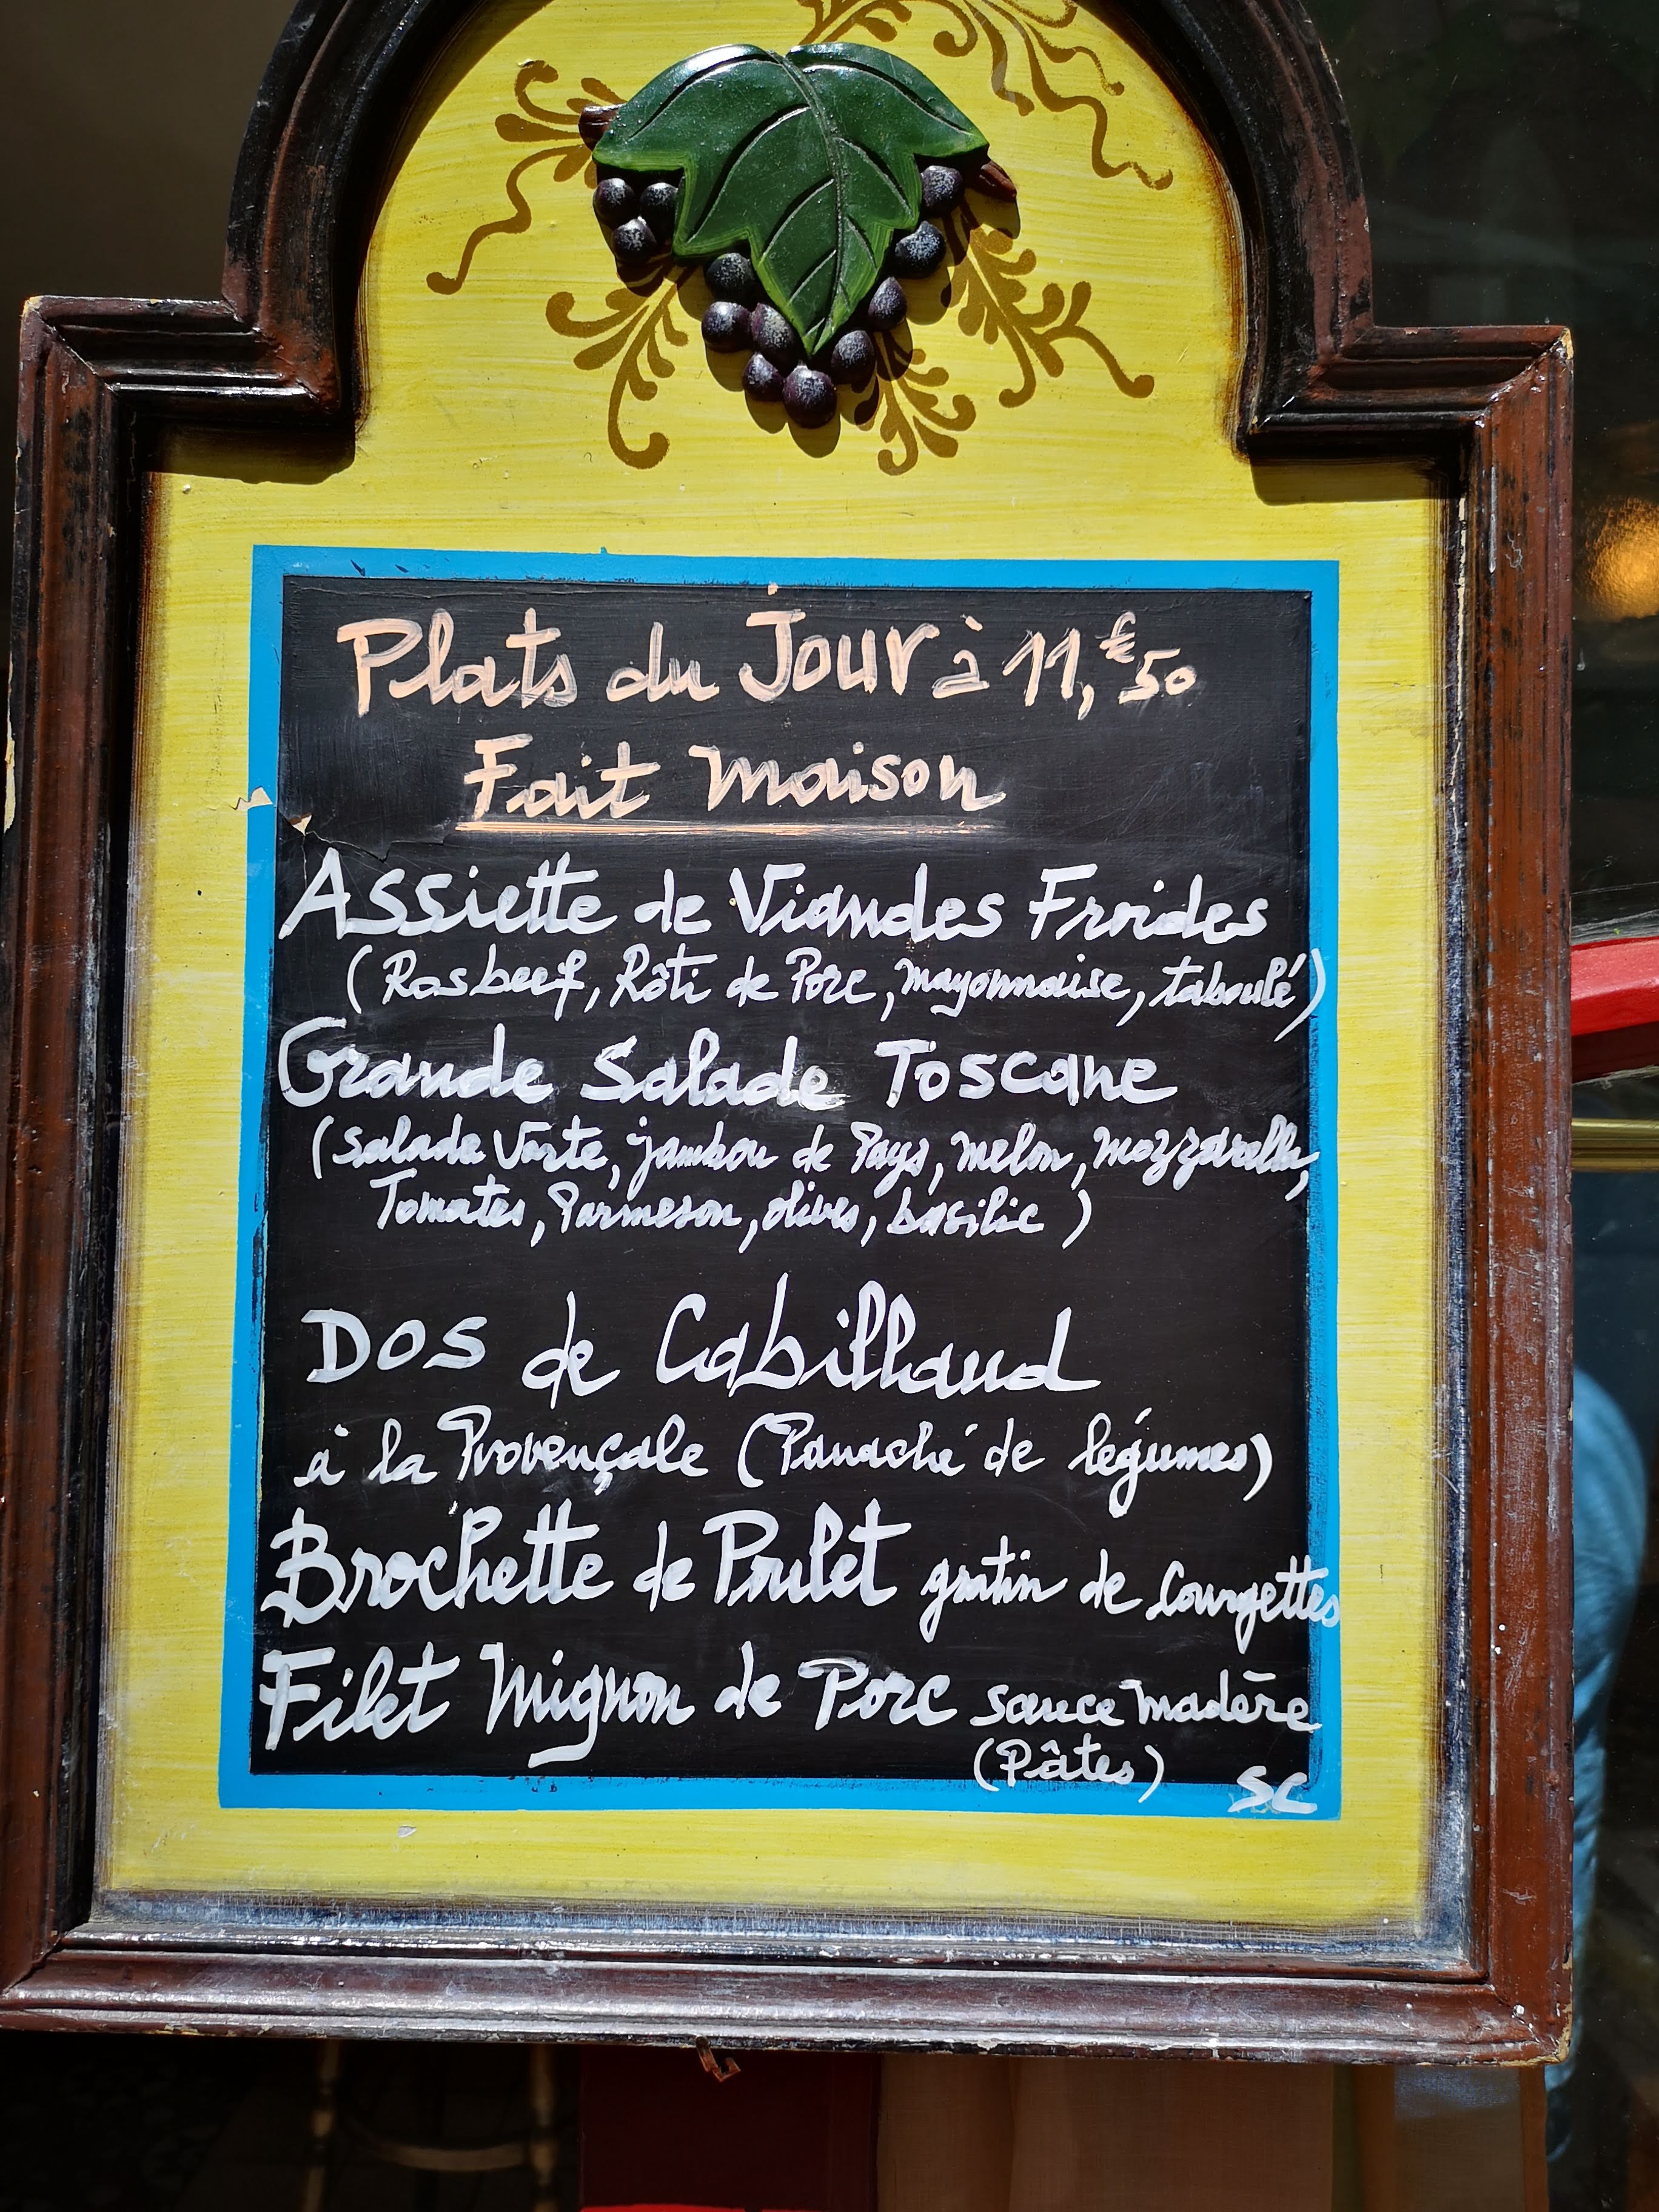 Plats du Jour à 11,€50
Fait maison
Assiette de Viandes Froides
(Rosbeef, Rôti de Porc, mayonnaise, taboulé)
Grande Salade Toscane
(Salade Verte, jambon de Pays, melon, mozzarella,
Tomates, Parmesan, olives, basilic)
DOS de Cabillaud
à la Provençale (Panaché de légumes)
Brochette de Poulet gratin de Courgettes
Filet Mignon de Porc sauce madère
(Pâtes)
SC